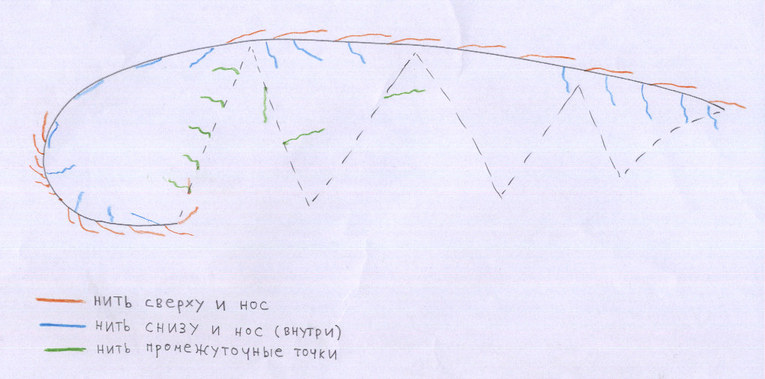 нить сверху и нос
нить снизу и нос (внутри)
нить промежуточные точки